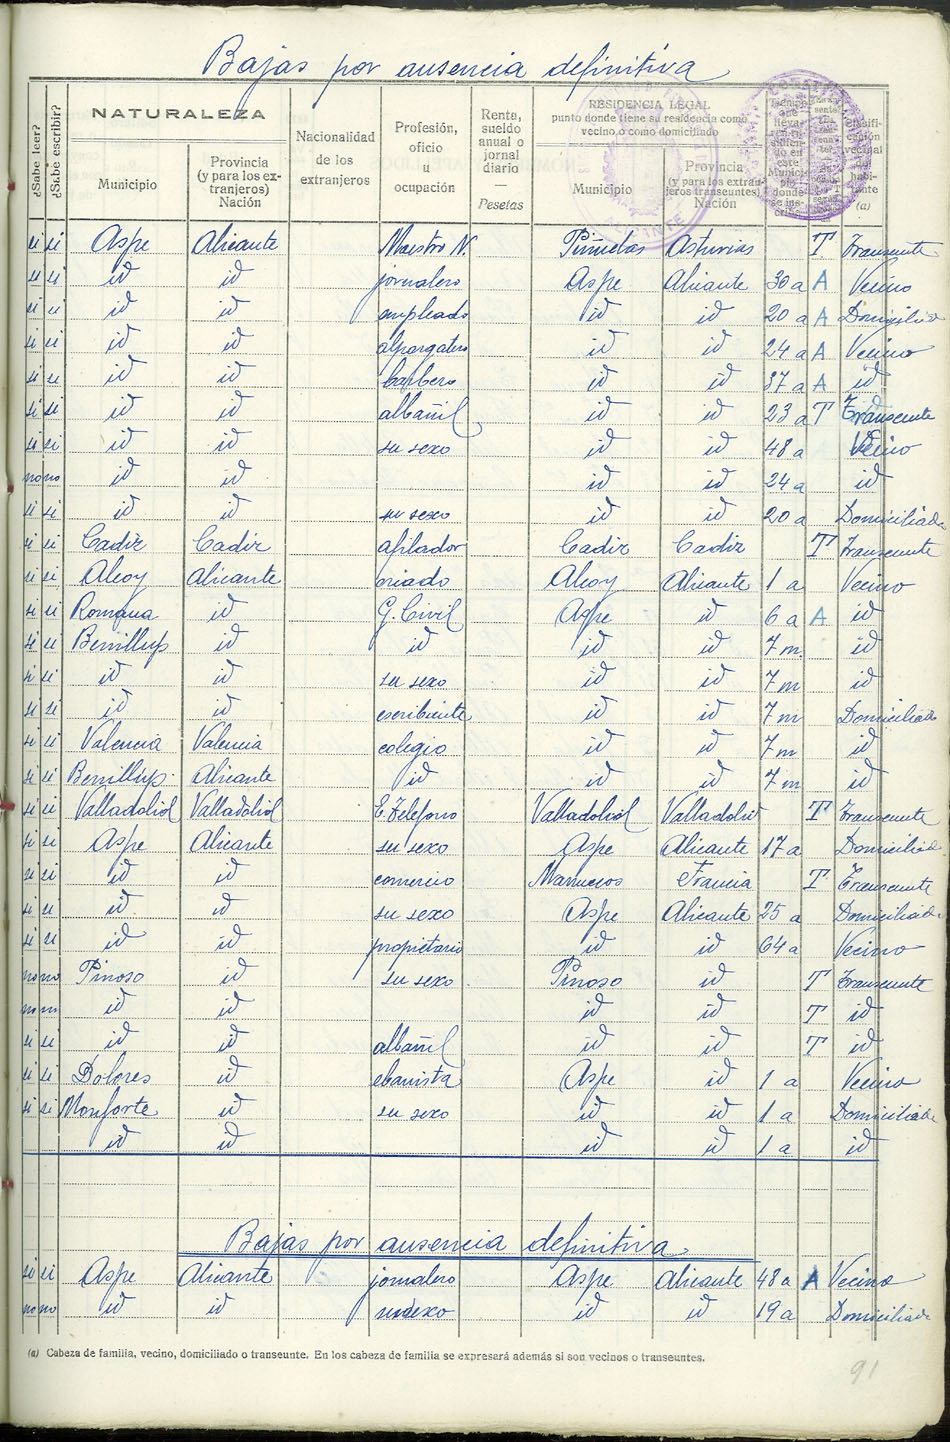 Bajas por ausencia definitiva
¿Sabe leer?
¿Sabe escribir?
NATURALEZA
Municipio
Provincia
(y para los ex-
tranjeros)
Nación
Nacionalidad
de los
extranjeros
Profesión,
oficio
u
ocupación
Renta,
sueldo
anual o
jornal
diario
—
Pesetas
RESIDENCIA LEGAL
punto donde tiene su residencia como
vecino o como domiciliado
Municipio
Provincia
(y para los extran-
jeros transeuntes)
Nación
(a)
si si Aspe Alicante Maestro N. Asturias T Transeunte
si si id id jornalero Aspe Alicante 30 a A Vecino
si si id id empleado id id 20 a A Domicilia
si si id id alpargatero id id 24 a A Vecino
si si id id barbero id id 37 a A id
si si id id albañil id id 23 a T Transeunte
si si id id su sexo id id 48 a Vecino
no no id id id id 24 a id
si si id id su sexo id id 20 a Domiciliada
si si Cadiz Cadiz afilador Cadiz Cadiz T Transeunte
si si Alcoy Alicante criado Alcoy Alicante 1 a Vecino
si si Romana id G. Civil Aspe id 6 a A id
si si Benillup id id id id 7 m. id
si si id id su sexo id id 7 m id
si si id id escribiente id id 7 m Domiciliado
si si Valencia Valencia colegio id id 7 m id
si si Benillup. Alicante id id id 7 m id
si si Valladolid Valladolid E. Telefono Valladolid Valladolid T Transeunte
si si Aspe Alicante su sexo Aspe Alicante 17 a Domicilia
si si id id comercio Marruecos Francia T Transeunte
si si id id su sexo Aspe Alicante 25 a Domiciliada
si si id id propietario id id 64 a Vecino
no no Pinoso id su sexo Pinoso id T Transeunte
no no id id id id T id
si si id id albañil id id T id
si si Dolores id ebanista Aspe id 1 a Vecino
si si Monforte id su sexo id id 1 a Domiciliada
id id id id 1 a id
Bajas por ausencia definitiva
si si Aspe Alicante jornalero Aspe Alicante 48 a A Vecino
no no id id id id 19 a Domiciliada
(a) Cabeza de familia, vecino, domiciliado o transeunte. En los cabeza de familia se expresará además si son vecinos o transeuntes.
91